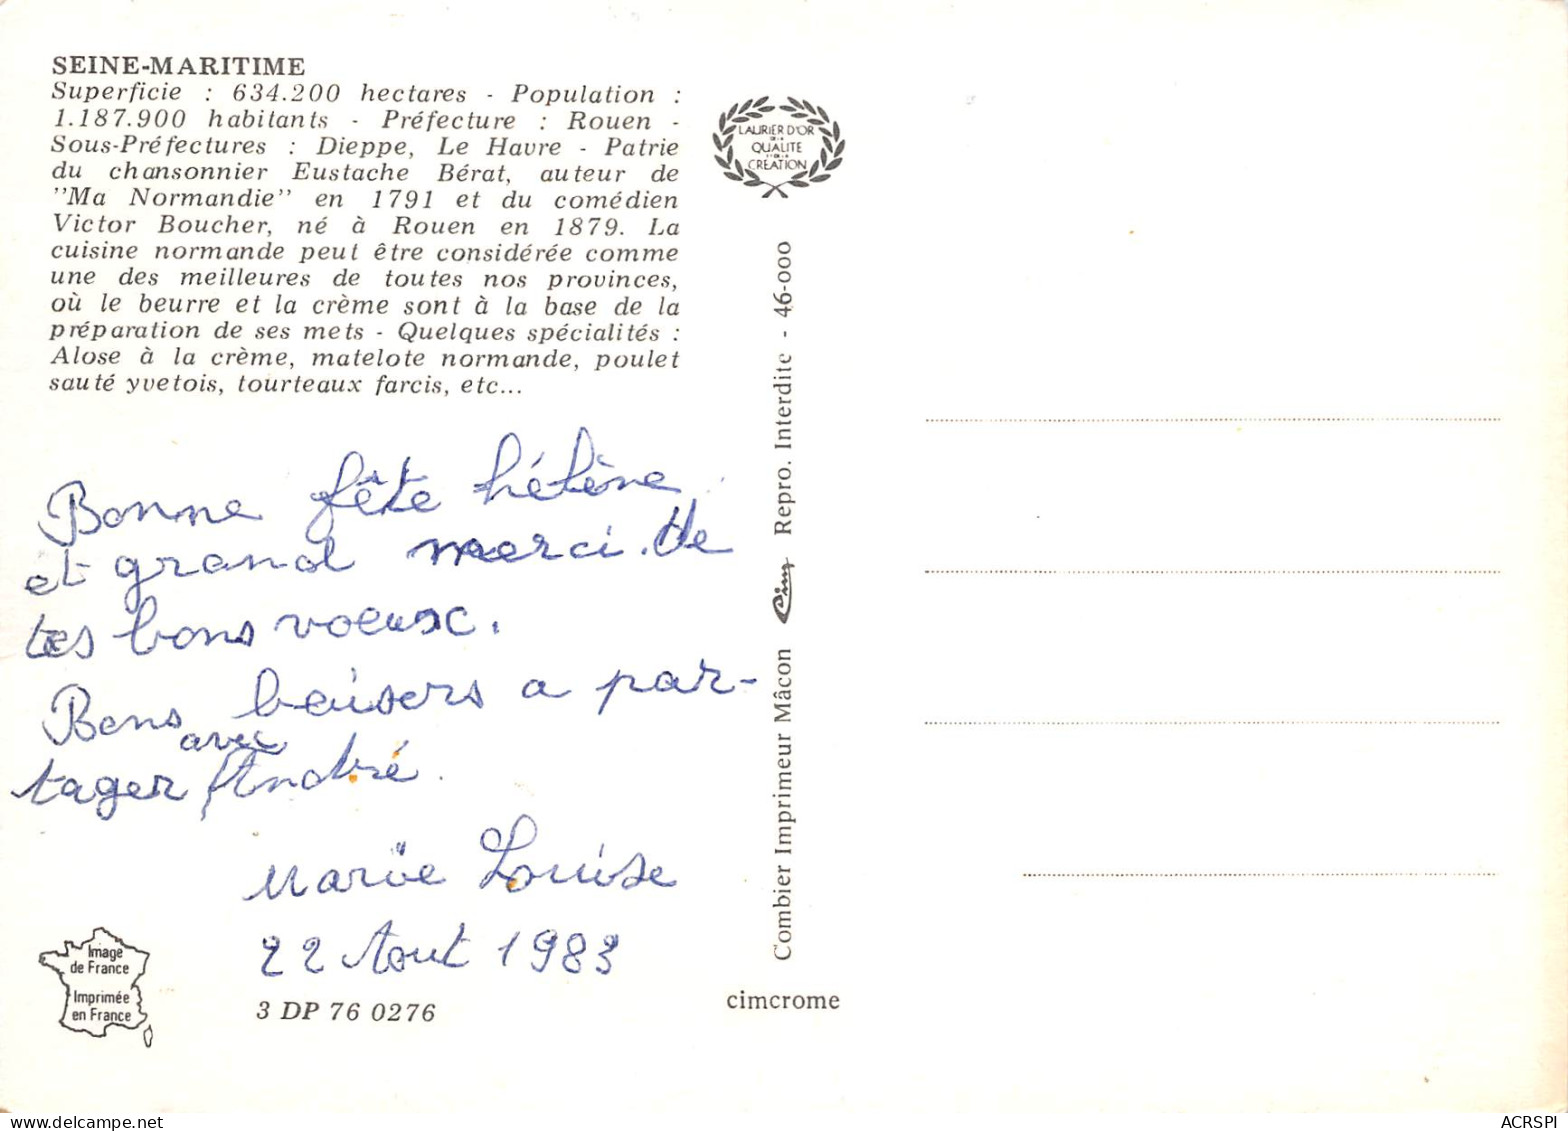 SEINE-MARITIME
Superficie : 634.200 hectares - Population :
1.187.900 habitants - Préfecture : Rouen -
Sous-Préfectures : Dieppe, Le Havre - Patrie
du chansonnier Eustache Bérat, auteur de
"Ma Normandie" en 1791 et du comédien
Victor Boucher, né à Rouen en 1879. La
cuisine normande peut être considérée comme
une des meilleures de toutes nos provinces,
où le beurre et la crème sont à la base de la
préparation de ses mets - Quelques spécialités :
Alose à la crème, matelote normande, poulet
sauté yvetois, tourteaux farcis, etc...
Bonne fête hélène
et grand merci de
tes bons voeux.
Bons baisers a par-
tager avec André.
Marie Louise
22 Aout 1983
Image
de France
Imprimée
en France
3 DP 76 0276
LAURIER D'OR
DE LA
QUALITE
ET DE LA
CREATION
Combier Imprimeur Mâcon Cim Repro. Interdite - 46-000
cimcrome
ACRSPI